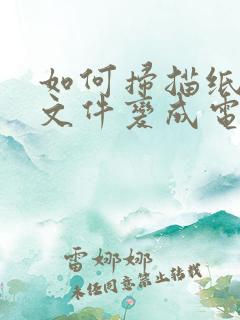 如何掃描纸
文件變成電
雷娜娜
未经同意禁止转载